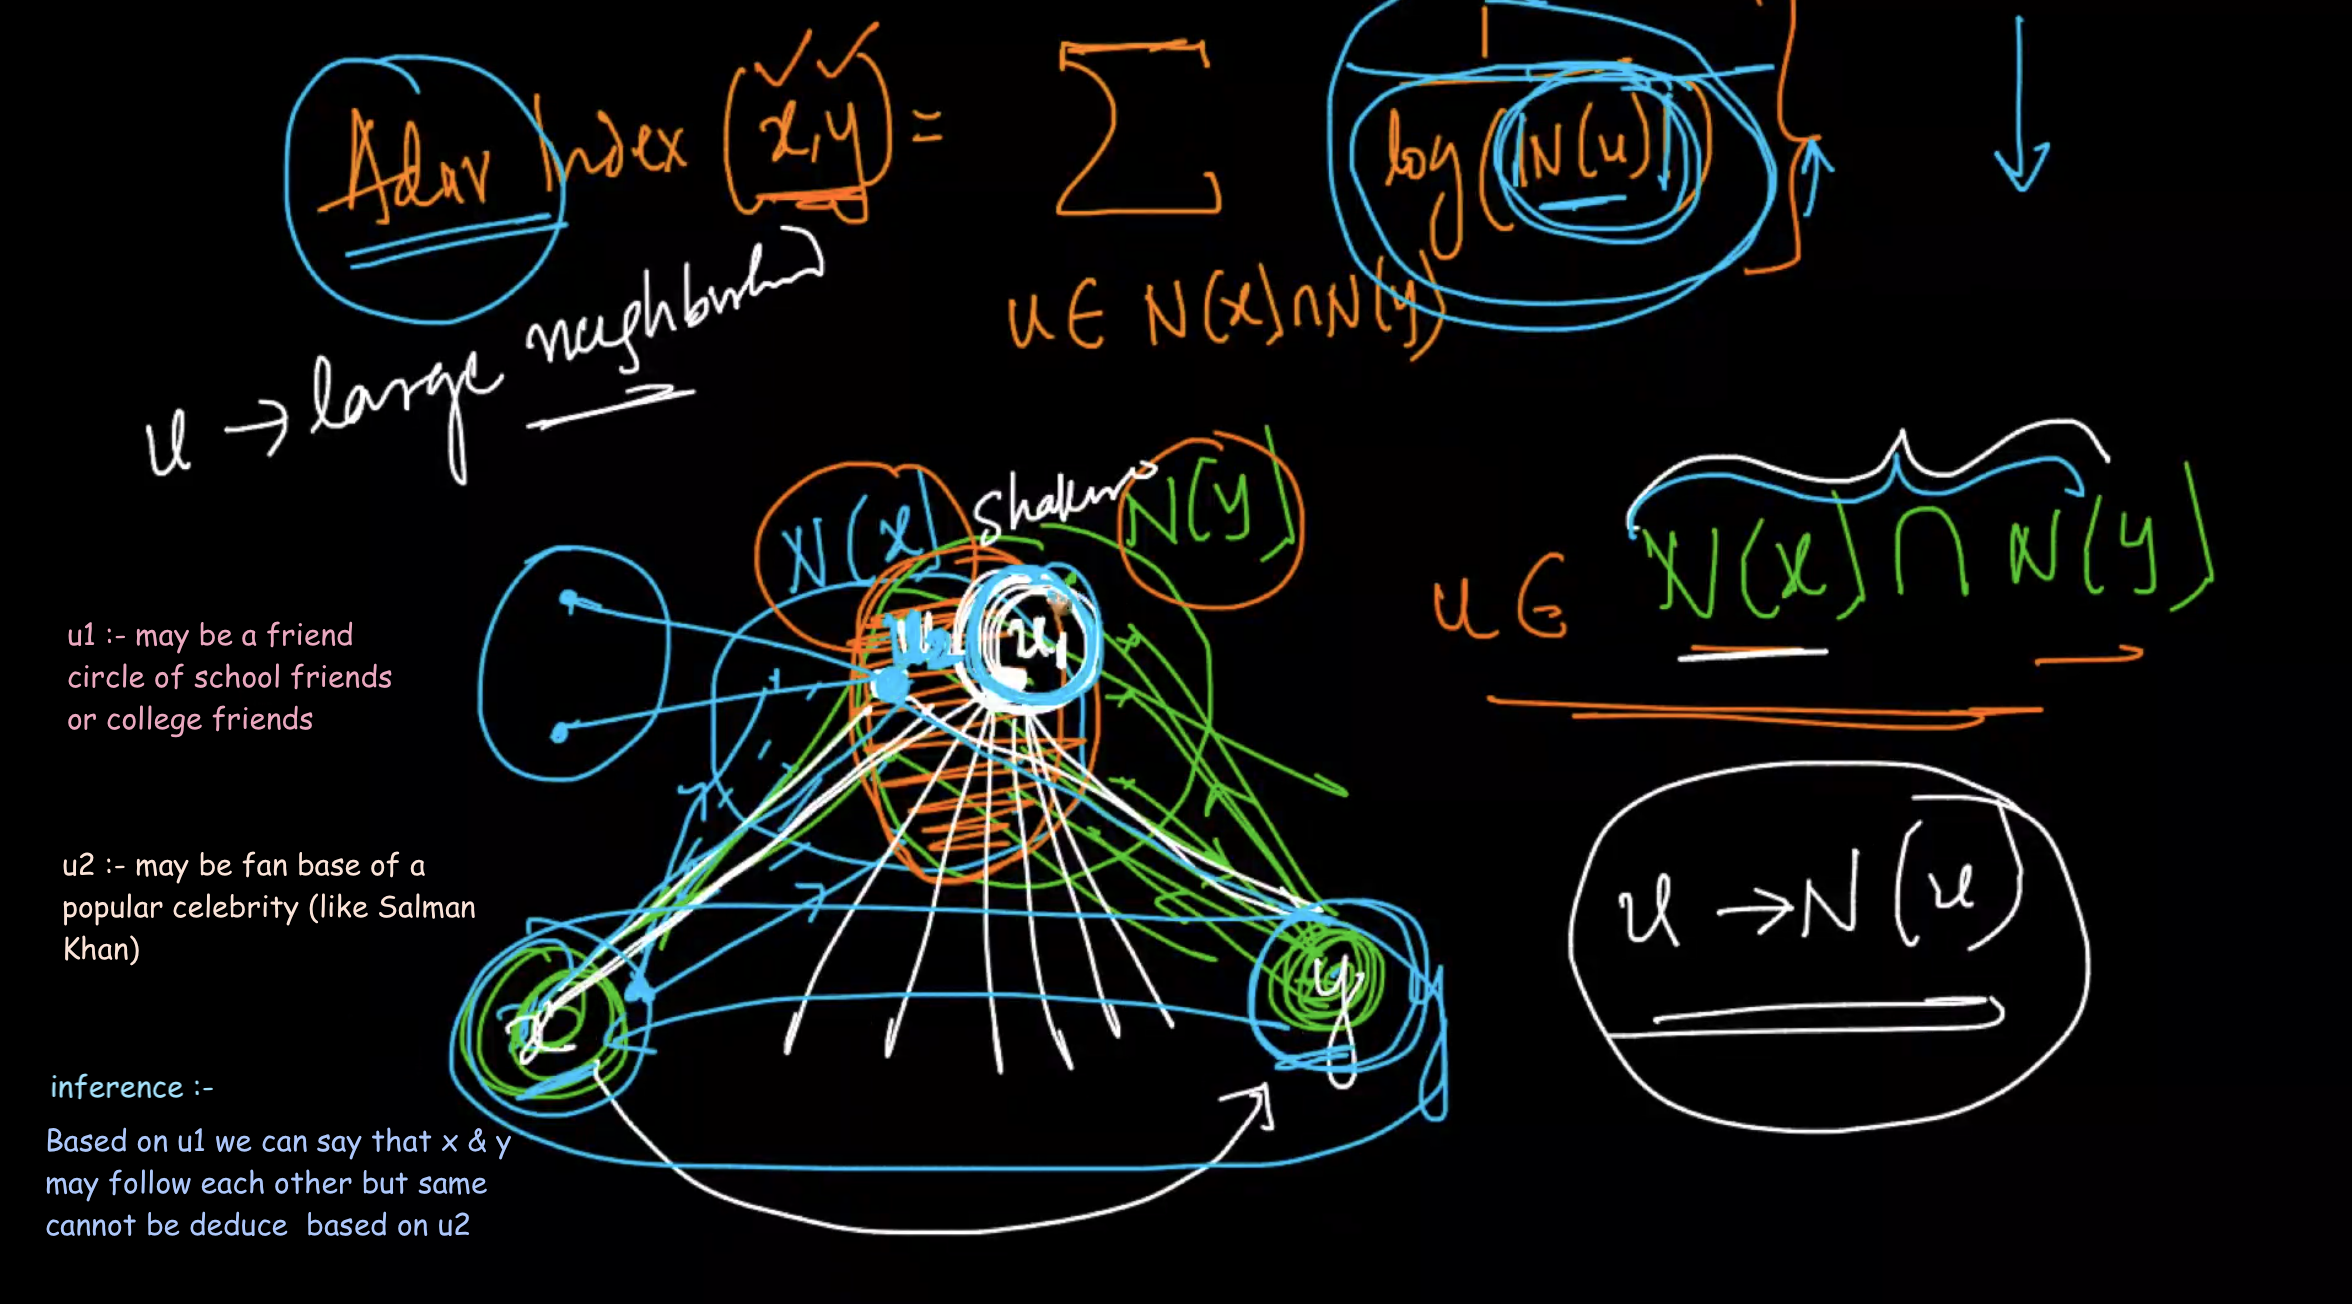 Adar Index (x,y) = Σ 1
log (|N(u)|)
u ∈ N(x) ∩ N(y)
u → large neighborhood
N(x)
N(y)
u ∈ N(x) ∩ N(y)
u2
u1
u1 :- may be a friend
circle of school friends
or college friends
u2 :- may be fan base of a
popular celebrity (like Salman
Khan)
u → N(u)
x
y
y
inference :-
Based on u1 we can say that x & y
may follow each other but same
cannot be deduce based on u2